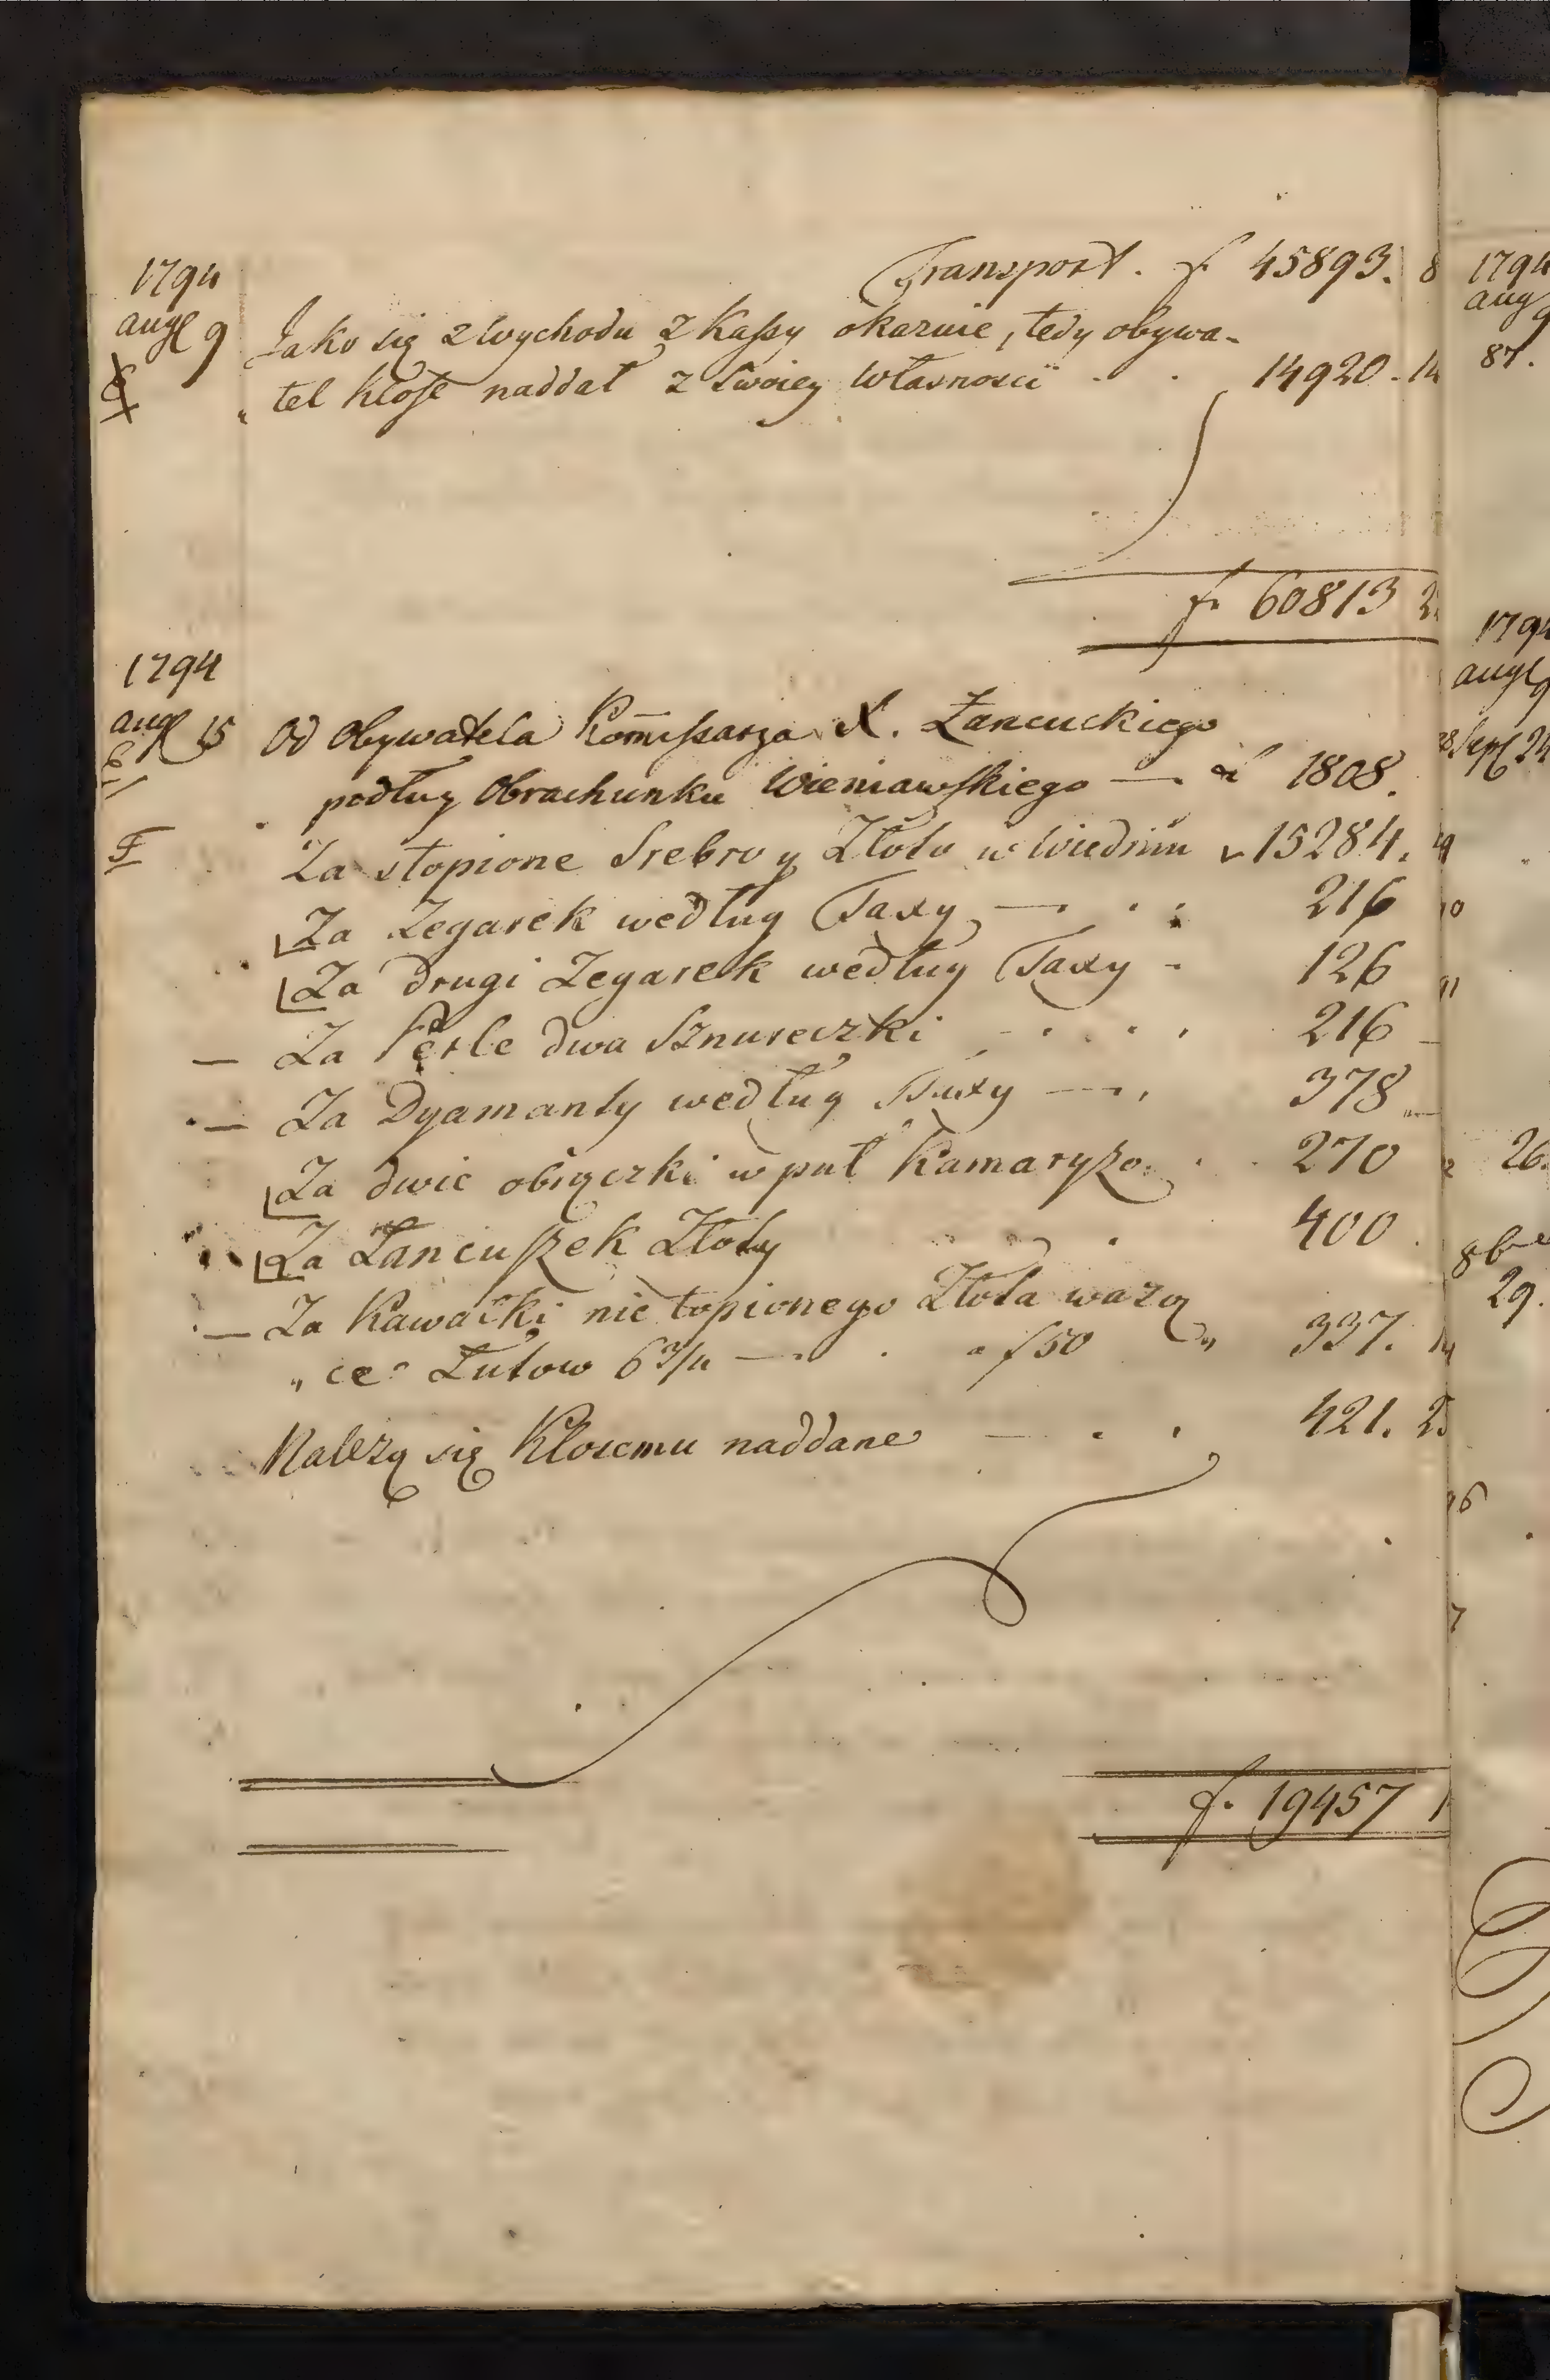 Transport. f 45893. 8
1794
augt 9 Jako się z wychodu z Kassy okazuie, tedy obywa-
tel Klose naddał z Swoiey własnosci - . 14920 . 14
f. 60813 2
1794
augt 15 Od Obywatela Kommissarza X. Łancuckiego
podług Obrachunku Wieniawskiego — 1808.
F Za stopione Srebro y Złoto w Wiedniu 15284.
Za Zegarek według Taxy — . . 216
Za drugi Zegarek według Taxy - 126
— Za Perle dwa Sznureczki - . . . 216
— Za Dyamenty według Taxy — . 378
Za dwie obrączki w puł Kamaryzo. . . 270
Za Łancuszek Złoty . 400
— Za Kawałki nie topionego Złota wazą
„ ce Łutow 6 3/4 — . . a f 50 „ 337.
Nalezą się Klosemu naddane — . . 421. 2
f. 19457 1
1794
aug 9
87.
1794
augt 9
Sept 24
26.
8b
29.